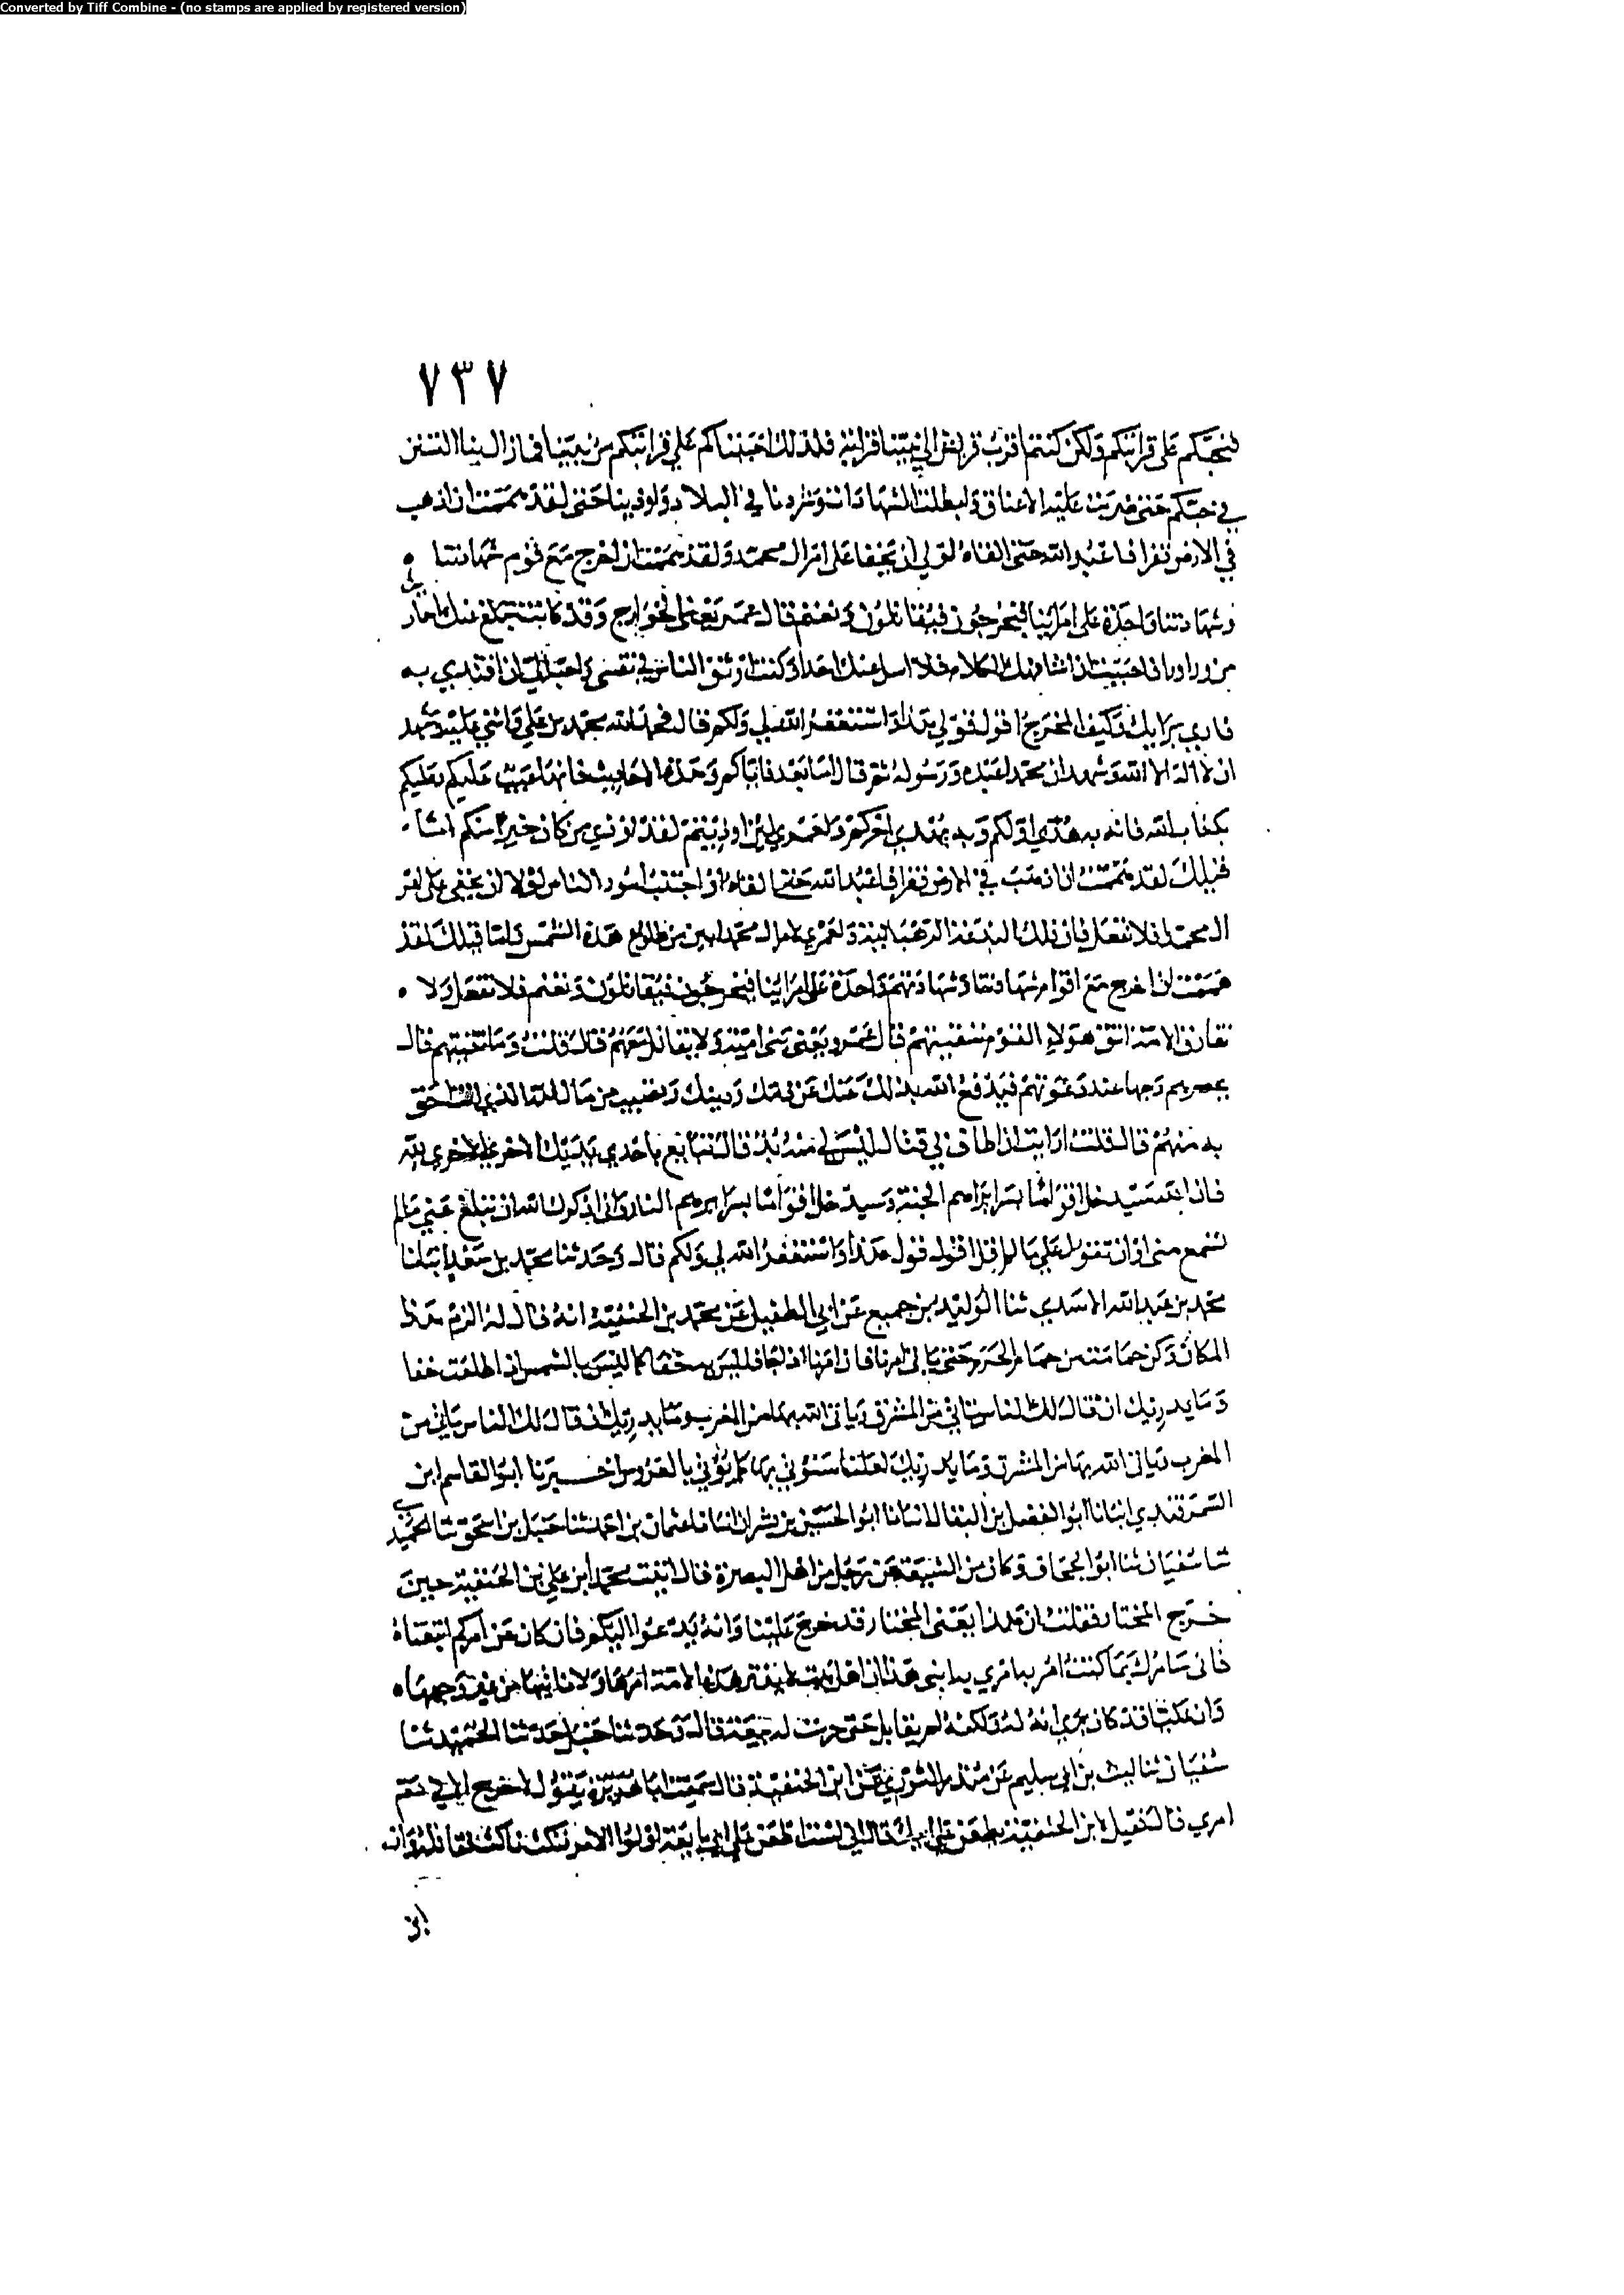 Converted by Tiff Combine - (no stamps are applied by registered version)
٧٣٧
فنحبكم على قرابتكم ولكن كنتم اقرب قريش الى نبينا قرابة فلذلك احببناكم على قرابتكم من نبينا فما زال بنا الشنن
في حبكم حتى ضربت عليه الاعناق وابطلت الشهادات وشردنا في البلاد واوذينا حتى لقد هممت ان اذهب
في الارض قفرا فاعبد الله حتى القاه لولا ان يخفى على امر ال محمد ولقد هممت ان اخرج مع قوم شهادتنا
وشهادتنا واحدة على امرائنا فيخرجون فيقاتلون ونقيم قال عمر يعني الخوارج وقد كانت تبلغنا عنك احاديث
من وراء وراء فاحببت ان اشافهك الكلام فلا اسل عنك احدا وكنت اوثق الناس في نفسي واحبه الي ان اقتدي به
فارى برايك وكيف المخرج اقول قولي هذا واستغفر الله لي ولكم قال فحمد الله محمد بن علي واثنى عليه وشهد
ان لا اله الا الله وشهد ان محمدا عبده ورسوله ثم قال اما بعد فاياكم وهذه الاحاديث فانها عيب عليكم وعليكم
بكتاب الله فانه به هدي اولكم وبه يهتدي اخركم ولعمري لئن اوذيتم لقد اوذي من كان خيرا منكم اما
قيلك لقد هممت ان اذهب في الارض قفرا فاعبد الله حتى القاه واجتنب امور الناس لولا ان يخفى على امر
ال محمد فلا تفعل فان تلك البدعة الرهبانية ولعمري لامر ال محمد ابين من طلوع هذه الشمس واما قيلك لقد
هممت ان اخرج مع اقوام شهادتنا وشهادتهم واحدة على امرائنا فيخرجون فيقاتلون ونقيم فلا تفعل ولا
تفارق الامة اتق هولاء القوم بتقيتهم قال عمرو يعني بني امية ولا تقاتل معهم قال قلت وما تقيتهم قال
تحضرهم وجها عند دعوتهم فيدفع الله بذلك عنك عن دمك ودينك وتصيب من مال الله الذي انت احق
به منهم قال قلت ارايت ان اطاف بي قتال ليس لي منه بد قال تبايع باحدى يديك الاخرى لله
فان الله سيدخل اقواما بسرائرهم الجنة وسيدخل اقواما بسرائرهم النار واني اذكرك الله ان تبلغ عني ما لم
تسمع مني او ان تقول علي ما لم اقل اقول قولي هذا واستغفر الله لي ولكم قال وحدثنا محمد بن سعد انبانا
محمد بن عبد الله الاسدي ثنا الوليد بن جميع عن ابي الطفيل عن محمد بن الحنفية انه قال له الزم هذا
المكان وكن حمامة من حمام الحرم حتى ياتي امرنا فان امرنا اذا جا فليس به خفا كما ليس بالشمس اذا طلعت خفا
وما يدريك ان قال لك الناس تاتي من المشرق وياتي الله بها من المغرب وما يدريك ان قال لك الناس تاتي من
المغرب وياتي الله بها من المشرق وما يدريك لعلنا سنؤتى بها كما يؤتى بالعروس اخبرنا ابو القاسم ابن
السمرقندي انبانا ابو الفضل بن البقال انبانا ابو الحسين بن بشران انبانا عثمان بن احمد ثنا حنبل بن اسحق ثنا الحميدي
ثنا سفيان ثنا ابو الجحاف وكان من الشيعة عن رجل من اهل البصرة قال اتيت محمد ابن علي بن الحنفية حين
خرج المختار فقلت ان هذا يعني المختار قد خرج علينا وانه يدعوا اليكم فان كان عن امركم اتبعناه
قال سامرك بما كنت امر به امري به ابني هذا انا اهل بيت لا نبتز هذه الامة امرها ولا ناتيها من غير وجهها
وان عليا قد كان يرى انه له ولكنه لم يقاتل حتى جرت له بيعة قال وحدثنا حنبل حدثنا الحميدي ثنا
سفيان ثنا ليث بن ابي سليم عن منذر الثوري عن ابن الحنفية قال سمعت ابا هريرة يقول لا حرج الا في دم
امري قال فقيل لابن الحنفية يطعن على ابيك قال اني لست اطعن على ابي بايعه اولوا الامر فنكث ناكث فقاتله وانه
ابن